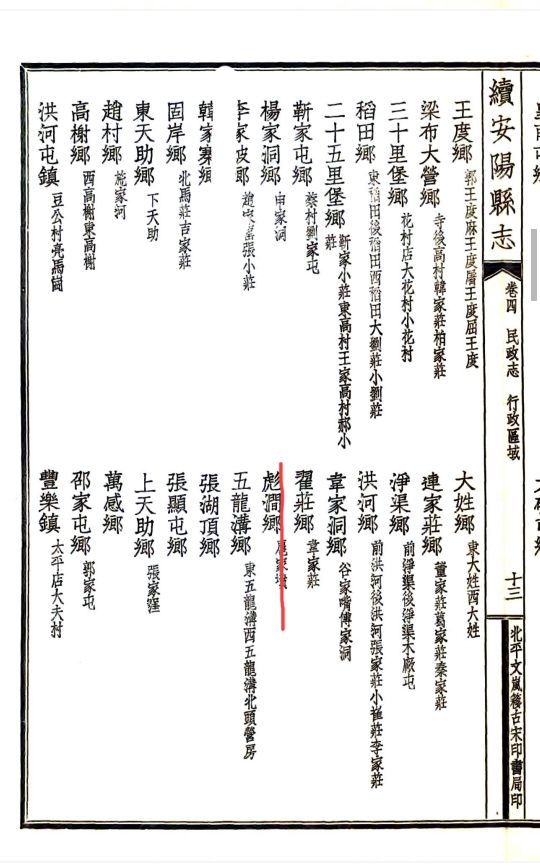 續安陽縣志 卷四 民政志 行政區域 十三 北平文嵐簃古宋印書局印
王度鄉 郭王度麻王度屠王度屈王度
大姓鄉 東大姓西大姓
梁布大營鄉 寺後高村韓家莊柏家莊
連家莊鄉 董家莊葛家莊秦家莊
三十里堡鄉 花村店大花村小花村
淨渠鄉 前淨渠後淨渠木廠屯
稻田鄉 東稻田後稻田西稻田大劉莊小劉莊
洪河鄉 前洪河後洪河張家莊小崔莊李家莊
二十五里堡鄉 靳家小莊東高村王家高村郝小莊
韋家洞鄉 谷家嘴傅家洞
靳家屯鄉 蔡村劉家屯
翟莊鄉 韋家莊
楊家洞鄉 申家洞
彪澗鄉
李家坡鄉 趙家窩張小莊
五龍溝鄉 東五龍溝西五龍溝北頭營房
韓家寨鄉
張湖頂鄉
固岸鄉 北馬莊吉家莊
張顯屯鄉
東天助鄉 下天助
上天助鄉 張家窪
趙村鄉 施家河
萬感鄉
高榭鄉 西高榭東高榭
邵家屯鄉 郭家屯
洪河屯鎮 豆公村亮馬崗
豐樂鎮 太平店大夫村